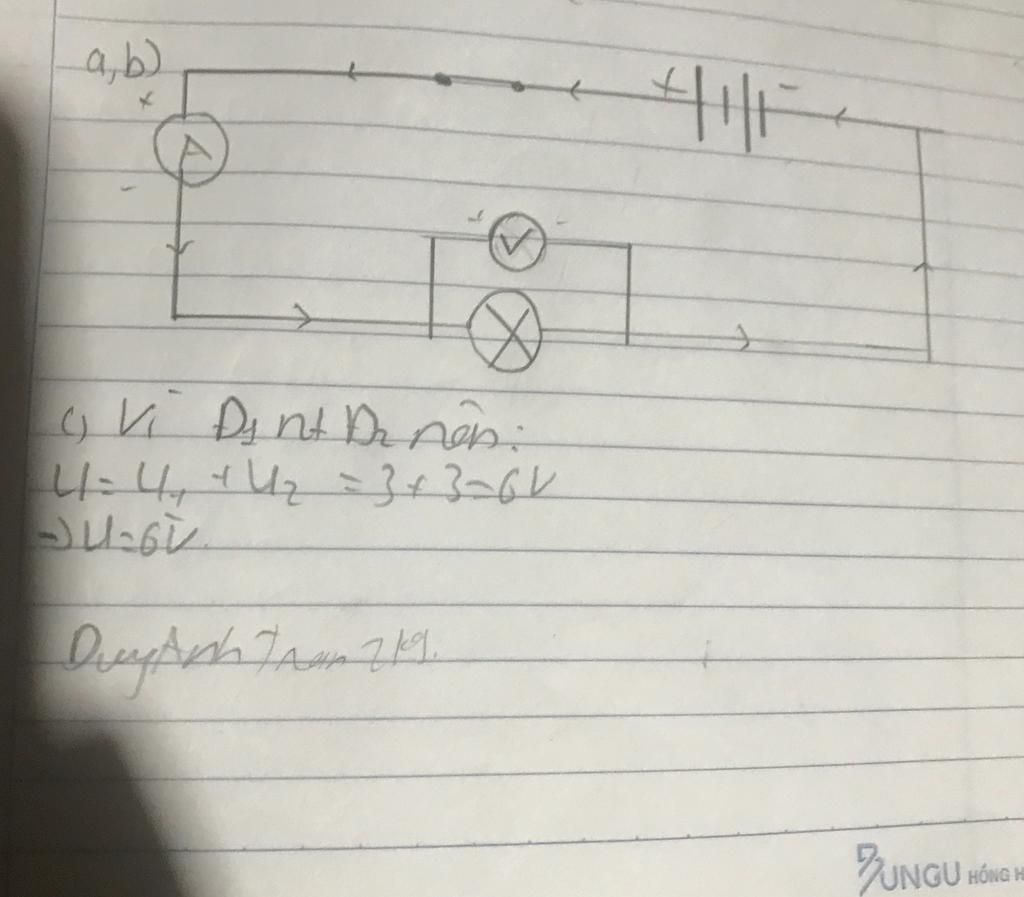 a,b)
+
A
-
+ -
+ V -
c) Vì Đ1 nt Đ2 nên:
U = U1 + U2 = 3 + 3 = 6V
=> U = 6V.
DuyAnh Tran 7kg.
UNGU HỒNG H